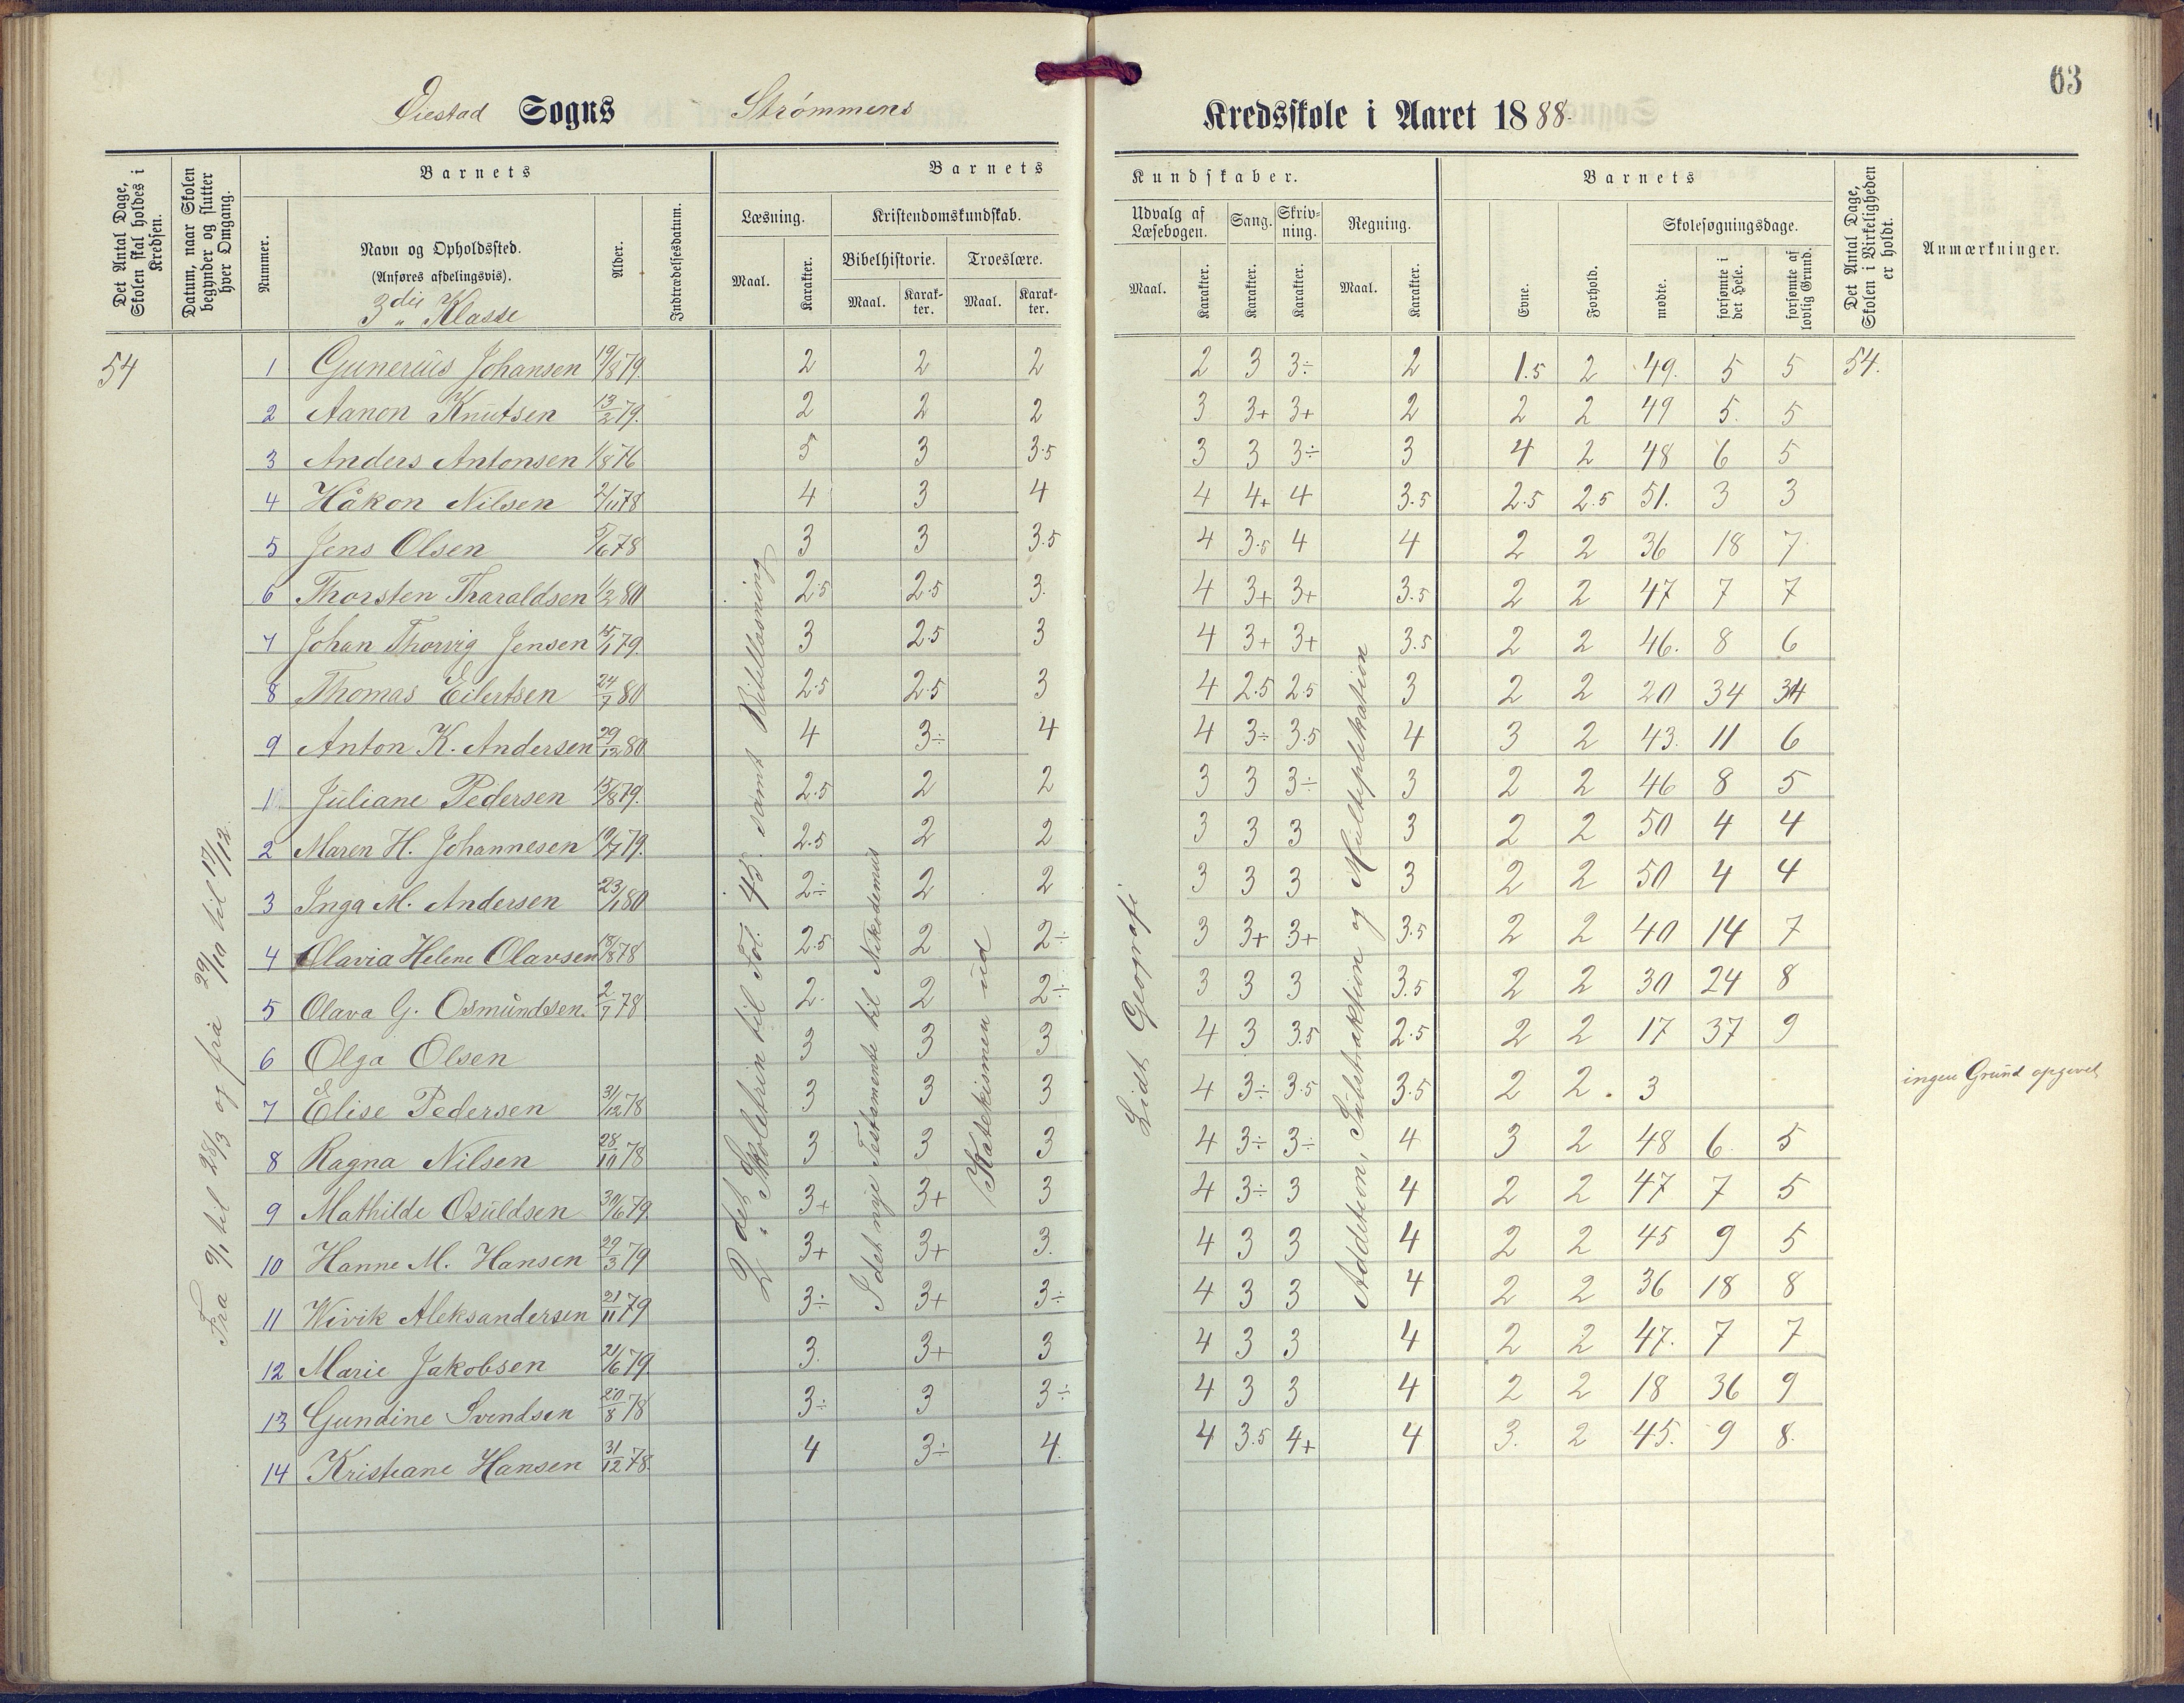 63
Øiestad Sogns Strømmens Kredsskole i Aaret 1888.
Det Antal Dage, Skolen skal holdes i Kredsen.
Datum, naar Skolen begynder og slutter hver Omgang.
Barnets
Nummer.
Navn og Opholdssted.
(Anføres afdelingsvis).
3die Klasse
Alder.
Indtrædelsesdatum.
Barnets Kundskaber.
Læsning.
Maal.
Karakter.
Kristendomskundskab.
Bibelhistorie.
Maal.
Karakter.
Troeslære.
Maal.
Karakter.
Udvalg af Læsebogen.
Maal.
Karakter.
Sang.
Karakter.
Skrivning.
Karakter.
Regning.
Maal.
Karakter.
Barnets
Evne.
Forhold.
Skolesøgningsdage.
mødte.
forsømte i det Hele.
forsømte af lovlig Grund.
Det Antal Dage, Skolen i Virkeligheden er holdt.
Anmærkninger.
54
Fra 9/1 til 28/3 og fra 29/10 til 17/12.
2det Skoletrin til Fol. 45. samt Bibellæsning
I det nye Testamente til Nikodemus
Katekismen ud
Lidt Geografi
Addition, Subtraktion og Multiplikation
1 Gunerius Johansen 19/8 79. 2 2 2 2 3 3÷ 2 1.5 2 49. 5 5 54.
2 Aanon Knutsen 13/2 79. 2 2 2 3 3+ 3+ 2 2 2 49 5. 5
3 Anders Antonsen 1/8 76 5 3 3.5 3 3 3÷ 3 4 2 48 6 5
4 Håkon Nilsen 2/11 78 4 3 4 4 4+ 4 3.5 2.5 2.5 51. 3 3
5 Jens Olsen 5/6 78 3 3 3.5 4 3.5 4 4 2 2 36 18 7
6 Thorsten Tharaldsen 1/2 80 2.5 2.5 3. 4 3+ 3+ 3.5 2 2 47 7 7
7 Johan Thorvig Jensen 15/1 79. 3 2.5 3 4 3+ 3+ 3.5 2 2 46. 8 6
8 Thomas Eilertsen 24/7 80 2.5 2.5 3 4 2.5 2.5 3 2 2 20 34 34
9 Anton K. Andersen 29/12 80 4 3÷ 4 4 3÷ 3.5 4 3 2 43. 11 6
1 Juliane Pedersen 15/8 79. 2.5 2 2 3 3 3÷ 3 2 2 46 8 5
2 Maren H. Johannesen 19/7 79. 2.5 2 2 3 3 3 3 2 2 50 4 4
3 Inga M. Andersen 23/1 80 2÷ 2 2 3 3 3 3 2 2 50 4 4
4 Olavia Helene Olavsen 18/8 78 2.5 2 2÷ 3 3+ 3+ 3.5 2 2 40 14 7
5 Olava G. Osmundsen. 2/7 78 2. 2 2÷ 3 3 3 3.5 2 2 30 24 8
6 Olga Olsen 3 3 3 4 3 3.5 2.5 2 2 17 37 9
7 Elise Pedersen 31/12 78 3 3 3 4 3÷ 3.5 3.5 2 2. 3 ingen Grund opgivet
8 Ragna Nilsen 28/10 78 3 3 3 4 3÷ 3÷ 4 3 2 48 6. 5
9 Mathilde Osuldsen 30/6 79. 3+ 3+ 3 4 3÷ 3 4 2 2 47 7 5
10 Hanne M. Hansen 29/3 79 3+ 3+ 3. 4 3 3 4 2 2 45 9 5
11 Wivik Aleksandersen 21/11 79 3÷ 3+ 3÷ 4 3 3 4 2 2 36 18 8
12 Marie Jakobsen 21/6 79. 3. 3+ 3 4 3 3 4 2 2 47. 7 7
13 Gundine Svendsen 20/8 78 3÷ 3 3÷ 4 3 3 4 2 2 18 36 9
14 Kristiane Hansen 31/12 78. 4 3÷ 4. 4 3.5 4+ 4 3. 2 45. 9 8.